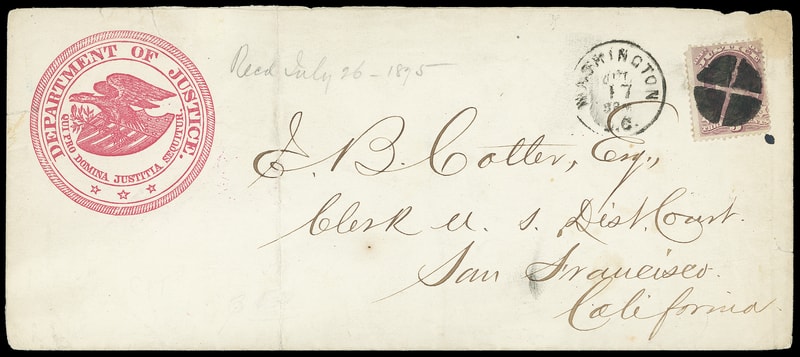 DEPARTMENT OF JUSTICE.
QUI PRO DOMINA JUSTITIA SEQUITUR.
Recd July 26 - 1875
WASHINGTON
JUL
17
D.C.
E. B. Cotter, Esq.,
Clerk U. S. Dist. Court.
San Francisco.
California.